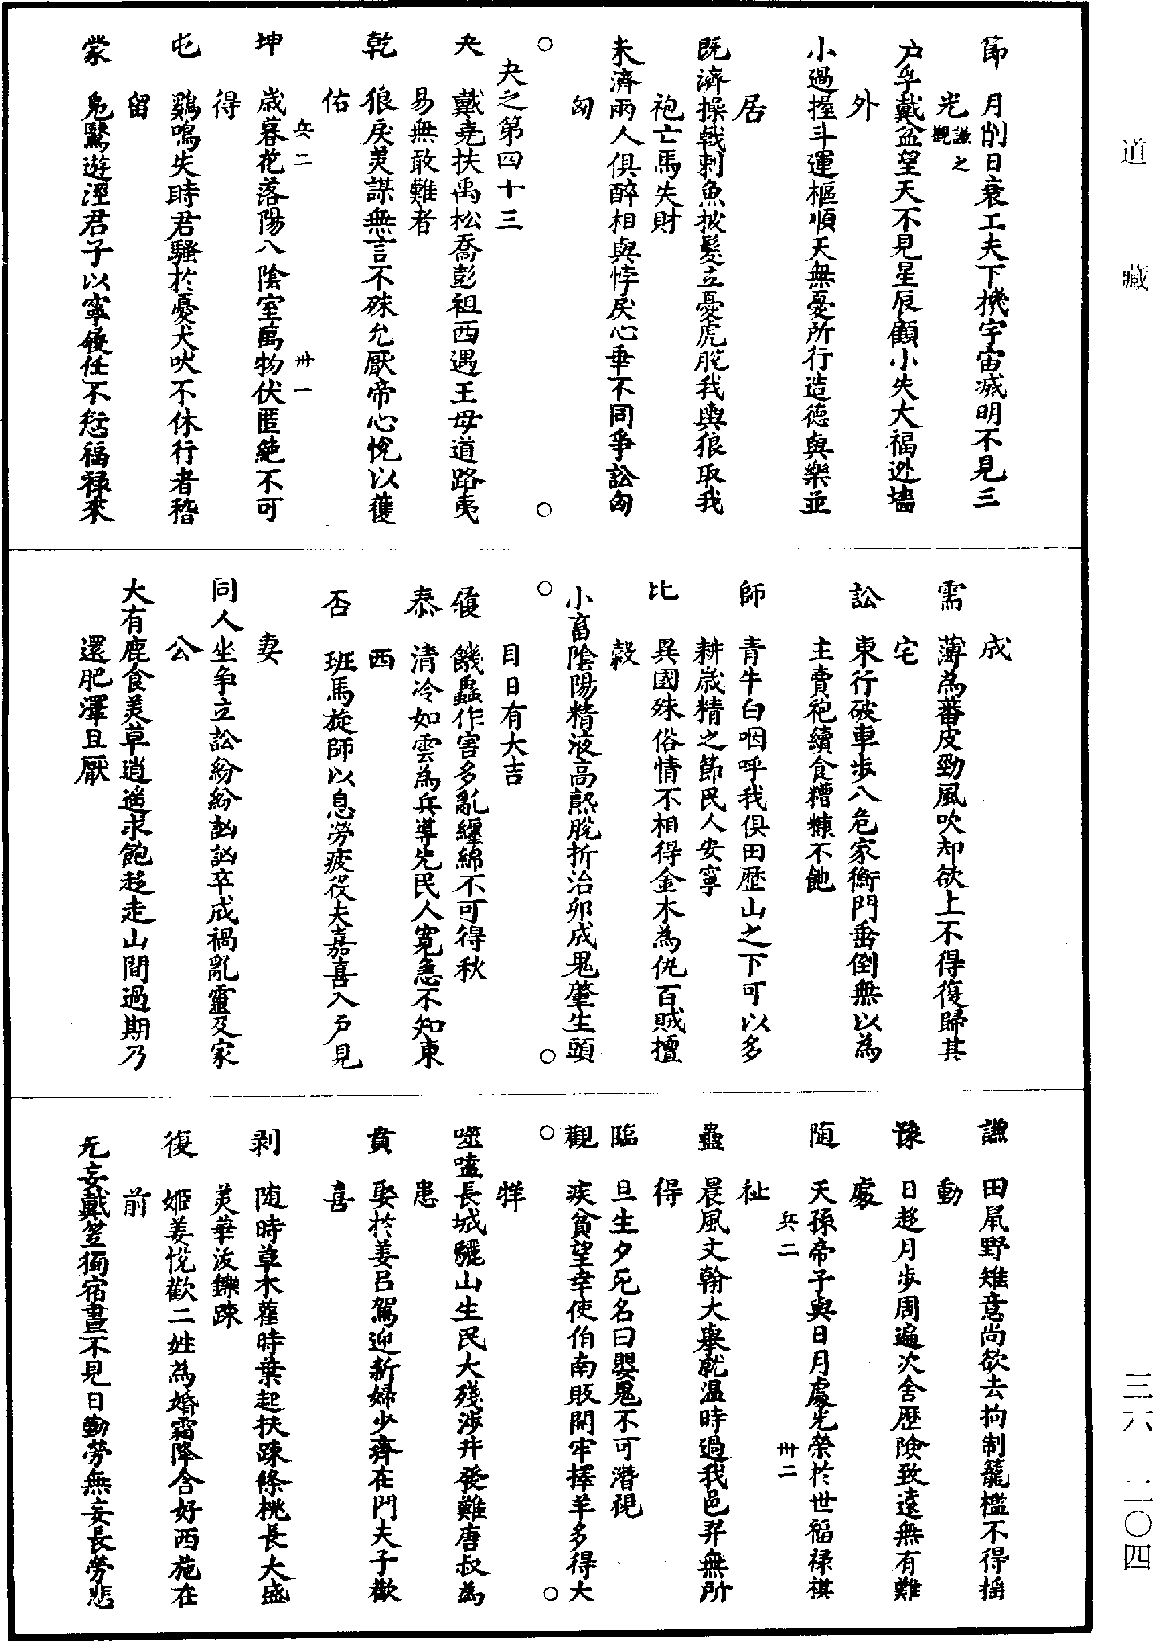 道藏
節　月削日衰工夫下機宇宙滅明不見三
光謙之觀
户孚戴盆望天不見星辰顧小失大福逃墻
外
小過握斗運樞順天無憂所行造德與樂並
居
既濟操戟刺魚披髮立憂虎脫我輿狼取我
袍亡馬失財
未濟兩人俱醉相與悖戾心乖不同爭訟匈
匈
夬之第四十三
夬　戴堯扶禹松喬彭祖西遇王母道路夷
易無敢難者
乾　狼戾美謀無言不殊允厭帝心悅以獲
佑
兵二　卅一
坤　歲暮花落陽入陰室萬物伏匿絶不可
得
屯　鷄鳴失時君騷於憂犬吠不休行者稽
留
蒙　鳧鷖遊涇君子以寧復任不愆福祿來
成
需　薄為蕃皮勁風吹却欲上不得復歸其
宅
訟　東行破車步入危家衡門垂倒無以為
主賣袍續食糟糠不飽
師　青牛白咽呼我俱田歷山之下可以多
耕歲精之節民人安寧
比　異國殊俗情不相得金木為仇百賊擅
殺
小畜陰陽精液高熟脫折治卵成鬼肇生頭
目日有大吉
復　饑蝨作害多亂纏綿不可得秋
泰　清冷如雲為兵導先民人寬急不知東
西
否　班馬旋師以息勞疲役夫嘉喜入戶見
妻
同人坐爭立訟紛紛訩訩卒成禍亂靈及家
公
大有鹿食美草逍遙求飽趍走山間過期乃
還肥澤且厭
謙　田鼠野雉意尚欲去拘制籠檻不得搖
動
豫　日趍月步周遍次舍歷險致遠無有難
處
隨　天孫帝子與日月處光榮於世福祿祺
祉
兵二　卅二
蠱　晨風文翰大舉就温時過我邑羿無所
得
臨　旦生夕死名曰嬰鬼不可潛視
觀　疾貧望幸使伯南販開牢擇羊多得大
牂
噬嗑長城驪山生民大殘涉井發難唐叔為
患
賁　娶於姜呂駕迎新婦少齊在門夫子歡
喜
剥　隨時草木舊時葉起扶踈條桃長大盛
美華沷鑠踈
復　姬姜悅歡二姓為婚霜降合好西施在
前
无妄戴笠獨宿晝不見日勤勞無妄長勞悲
三六　二〇四